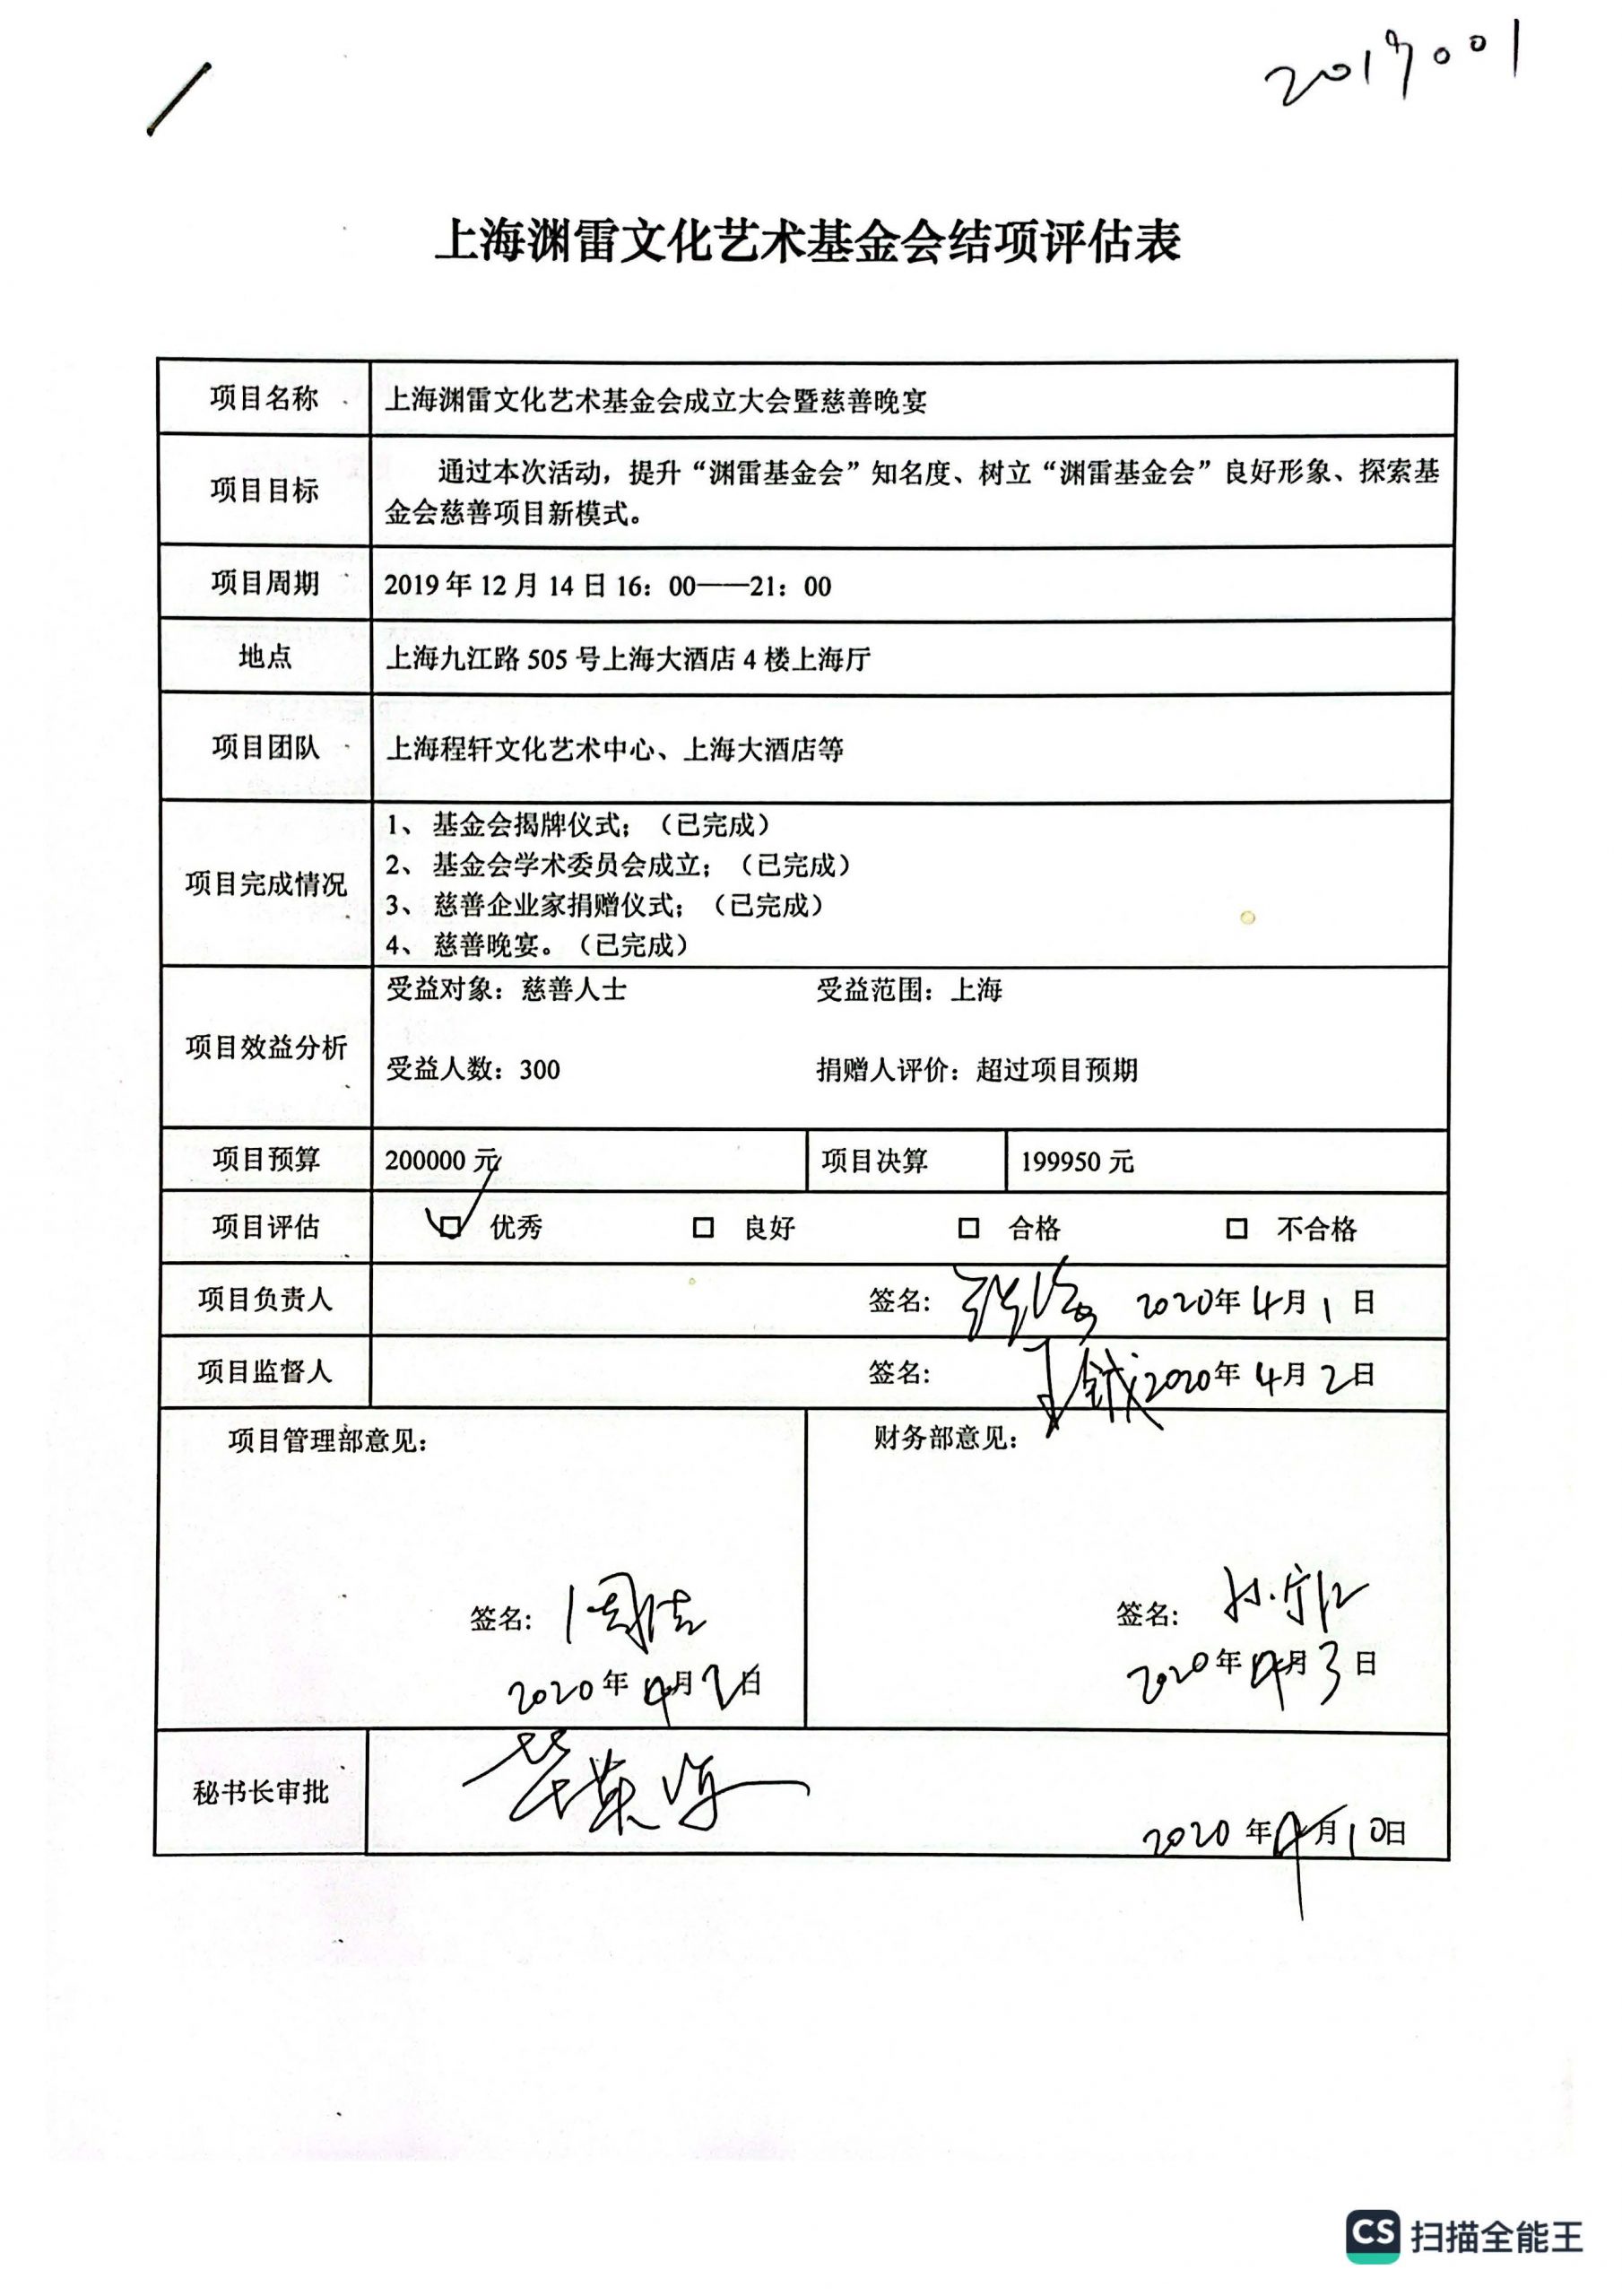 2019001
上海渊雷文化艺术基金会结项评估表
项目名称 上海渊雷文化艺术基金会成立大会暨慈善晚宴
项目目标 通过本次活动，提升“渊雷基金会”知名度、树立“渊雷基金会”良好形象、探索基
金会慈善项目新模式。
项目周期 2019 年 12 月 14 日 16：00——21：00
地点 上海九江路 505 号上海大酒店 4 楼上海厅
项目团队 上海程轩文化艺术中心、上海大酒店等
项目完成情况
1、 基金会揭牌仪式；（已完成）
2、 基金会学术委员会成立；（已完成）
3、 慈善企业家捐赠仪式；（已完成）
4、 慈善晚宴。（已完成）
项目效益分析
受益对象：慈善人士 受益范围：上海
受益人数：300 捐赠人评价：超过项目预期
项目预算 200000 元 项目决算 199950 元
项目评估 ☑ 优秀 □ 良好 □ 合格 □ 不合格
项目负责人 签名: 2020年 4月 1 日
项目监督人 签名: 2020年 4月 2日
项目管理部意见： 财务部意见：
签名: 签名:
2020 年 4月 2日 2020 年 4月 3 日
秘书长审批
2020 年 4月 10日
CS 扫描全能王